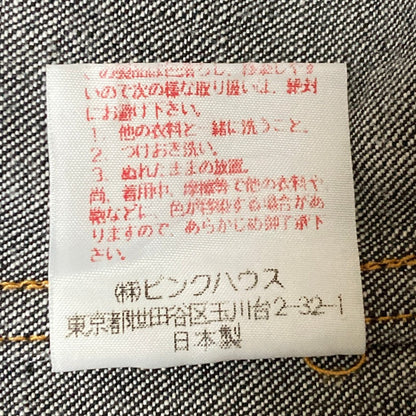 この製品は色落ちし、移染しやす
いので次の様な取り扱いは、絶対
にお避け下さい。
1、他の衣料と一緒に洗うこと。
2、つけおき洗い。
3、ぬれたままの放置。
尚、着用中、摩擦等で他の衣料や
鞄などに、色が移染する場合があ
りますので、あらかじめ御了承下
さい。
㈱ピンクハウス
東京都世田谷区玉川台2-32-1
日本製